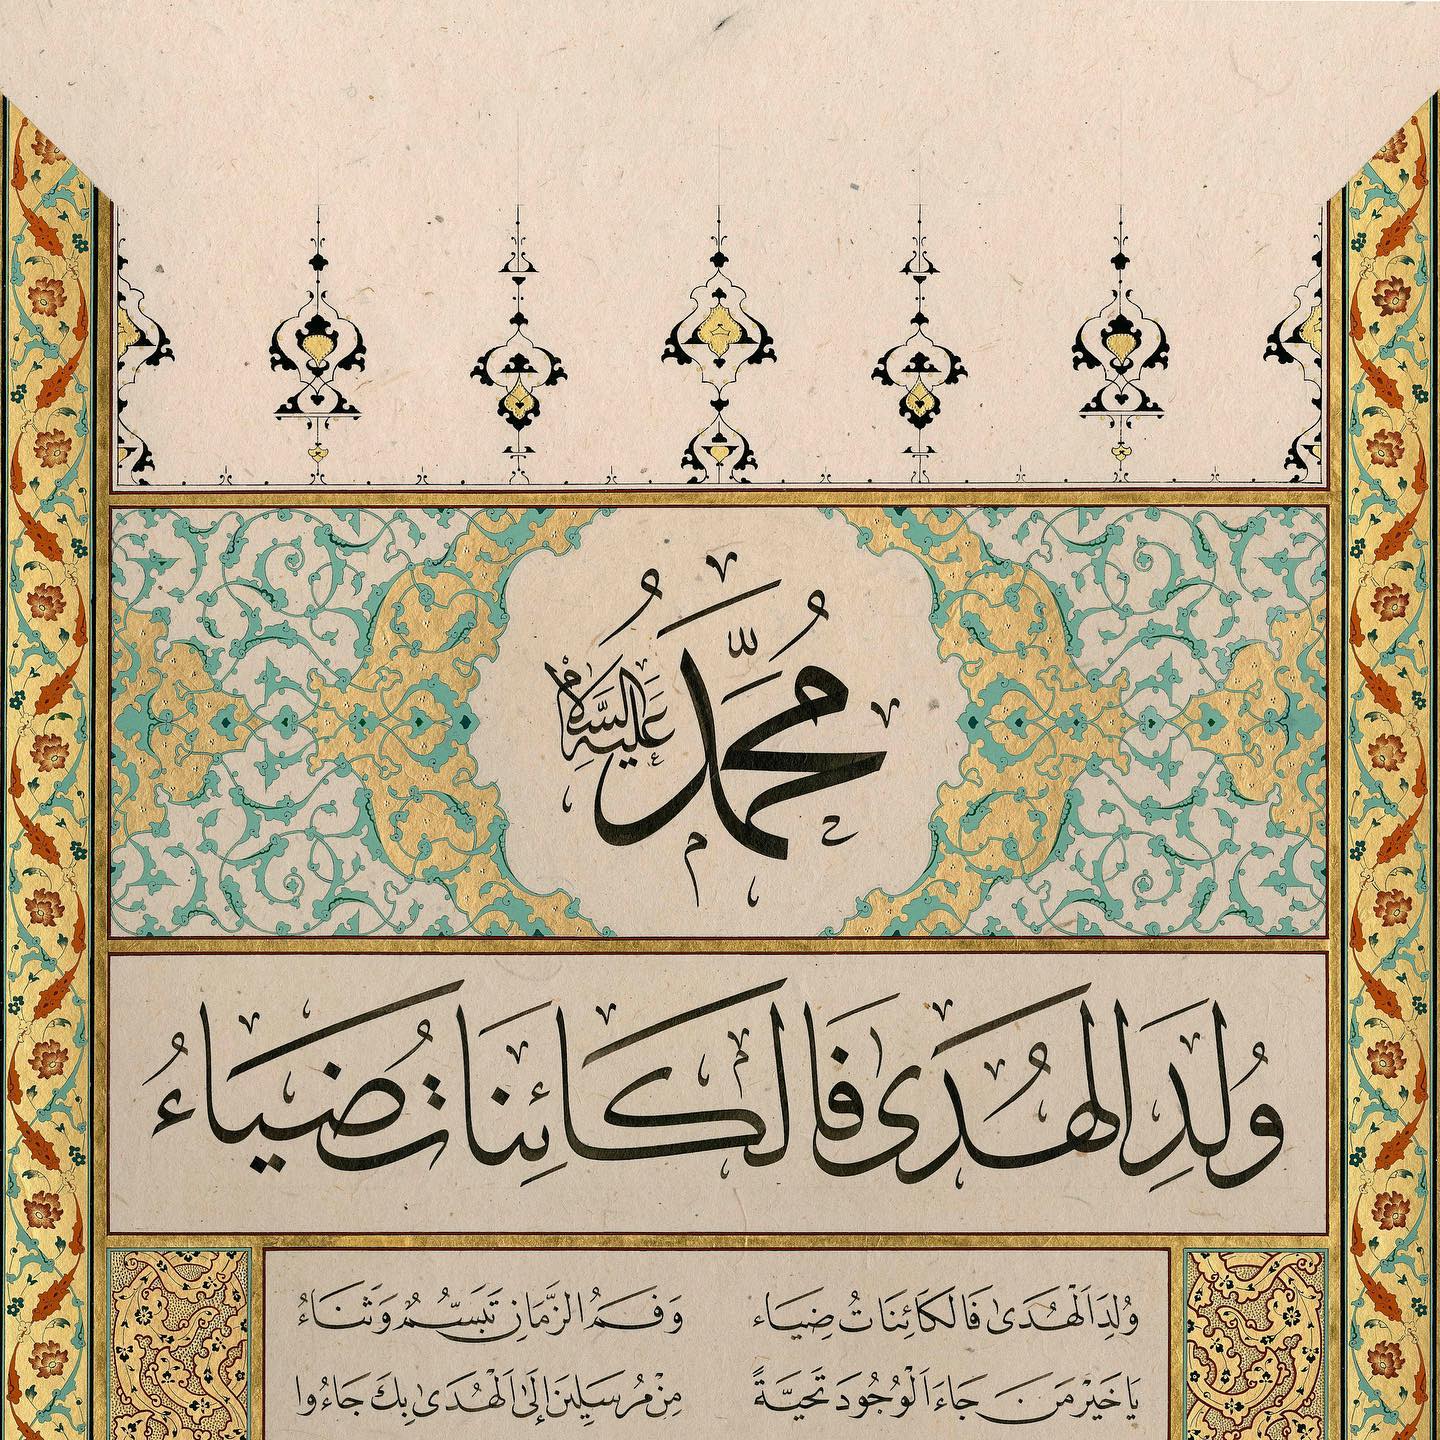 مُحَمَّدٌ عَلَيْهِ السَّلَامُ
وُلِدَ الهُدَى فَالكَائِنَاتُ ضِيَاءُ
وُلِدَ الْهُدَىٰ فَالْكَائِنَاتُ ضِيَاء وَفَمُ الزَّمَانِ تَبَسُّمٌ وَثَنَاءُ
يَا خَيْرَ مَنْ جَاءَ الْوُجُودَ تَحِيَّةً مِنْ مُرْسَلِينَ إِلَى الْهُدَىٰ بِكَ جَاءُوا